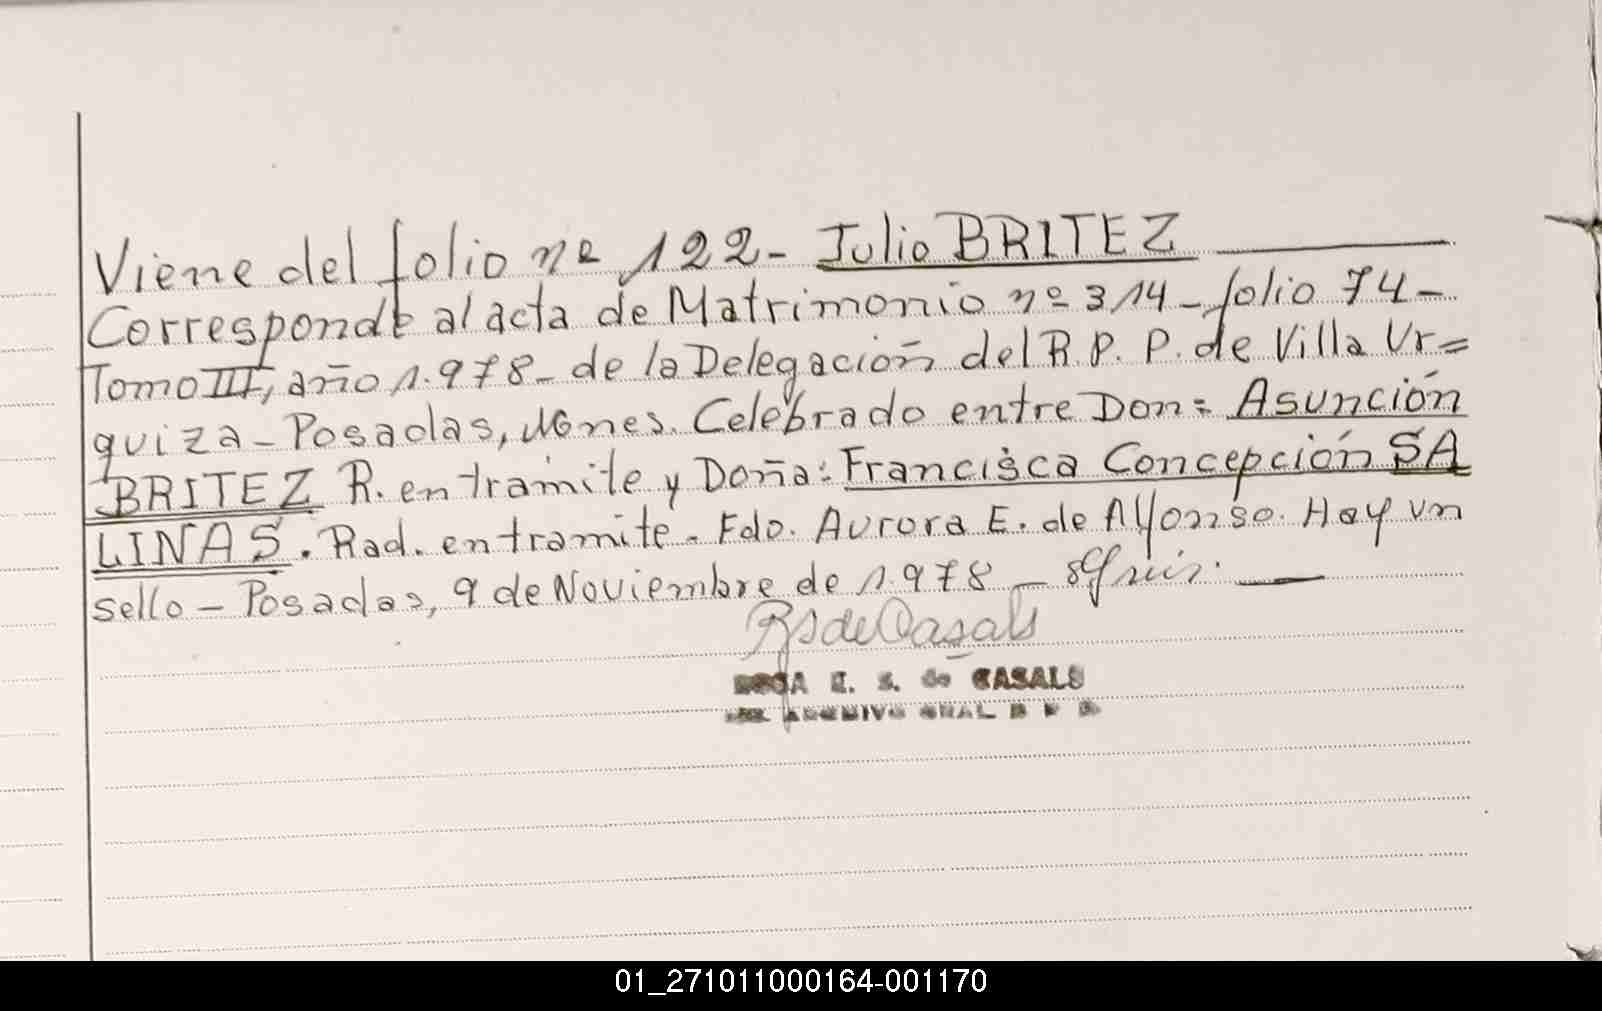 Viene del folio nº 122- Julio BRITEZ
Corresponde al acta de Matrimonio nº 314- folio 74-
Tomo III, año 1.978- de la Delegación del R.P.P. de Villa Ur=
quiza- Posadas, Mnes. Celebrado entre Don: Asunción
BRITEZ R. en tramite y Doña: Francisca Concepción SA
LINAS. Rad. en tramite. Fdo. Aurora E. de Alfonso. Hay un
sello- Posadas, 9 de Noviembre de 1.978-
RS de Casals
ROSA E. S. de CASALS
ARCHIVO GRAL
01_271011000164-001170